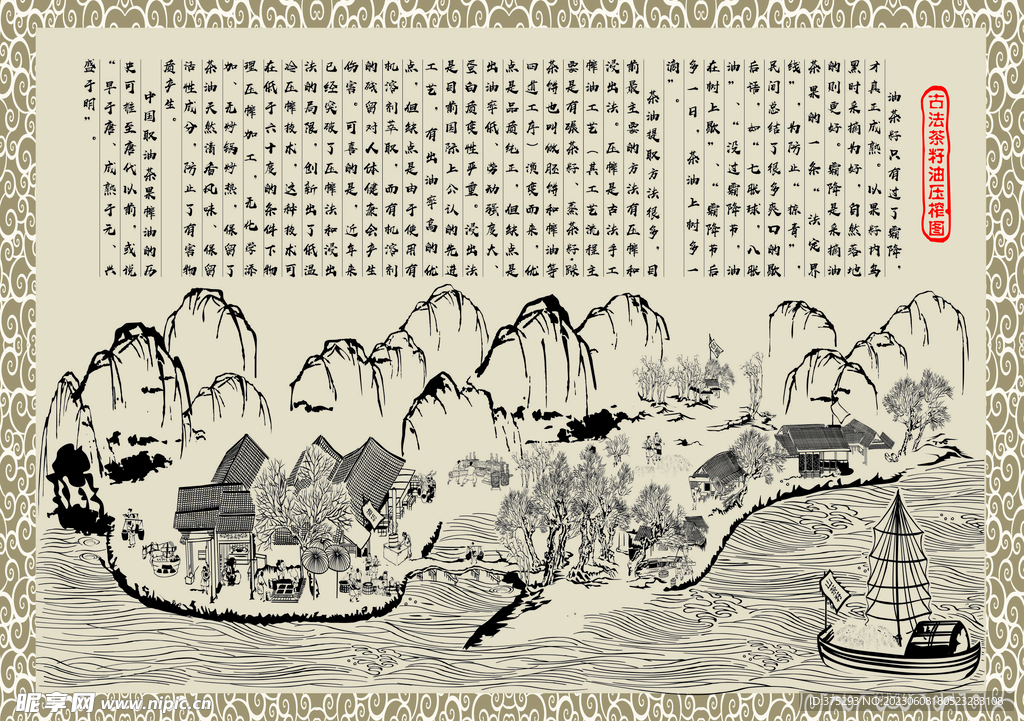 古法茶籽油压榨图
油茶籽只有过了霜降，
才真正成熟。以果籽内乌
黑时采摘为好，自然落地
的则更好。霜降是采摘油
茶果的一条“法定界
线”，为防止“掠青”，
民间总结了很多爽口的歇
后语，如“七胀球，八胀
油”、“没过霜降节，油
在树上歇”、“霜降节后
多一日，茶油上树多一
滴”。
茶油提取方法很多，目
前最主要的方法有压榨和
浸出法。压榨是古法手工
榨油工艺（其工艺流程主
要是有碾茶籽、蒸茶籽、踩
茶饼也叫做胚饼和榨油等
四道工序）演变而来，优
点是品质纯正，但缺点是
出油率低、劳动强度大、
蛋白质变性严重。浸出法
是目前国际上公认的先进
工艺，有出油率高的优
点，但缺点是由于使用有
机溶剂萃取，而有机溶剂
的残留对人体健康会产生
伤害。可喜的是，近年来
已经突破了压榨法和浸出
法的局限，创新出了低温
冷压榨技术，这种技术可
在低于六十度的条件下物
理压榨加工，无化学添
加、无炒锅炒熟，保留了
茶油天然清香风味、保留
活性成分，防止了有害物
质产生。
中国取油茶果榨油的历
史可推至唐代以前，或说
“早于唐、成熟于元、兴
盛于明”。
昵享网 www.nipic.cn
ID:375293 NO:20230608180523283108